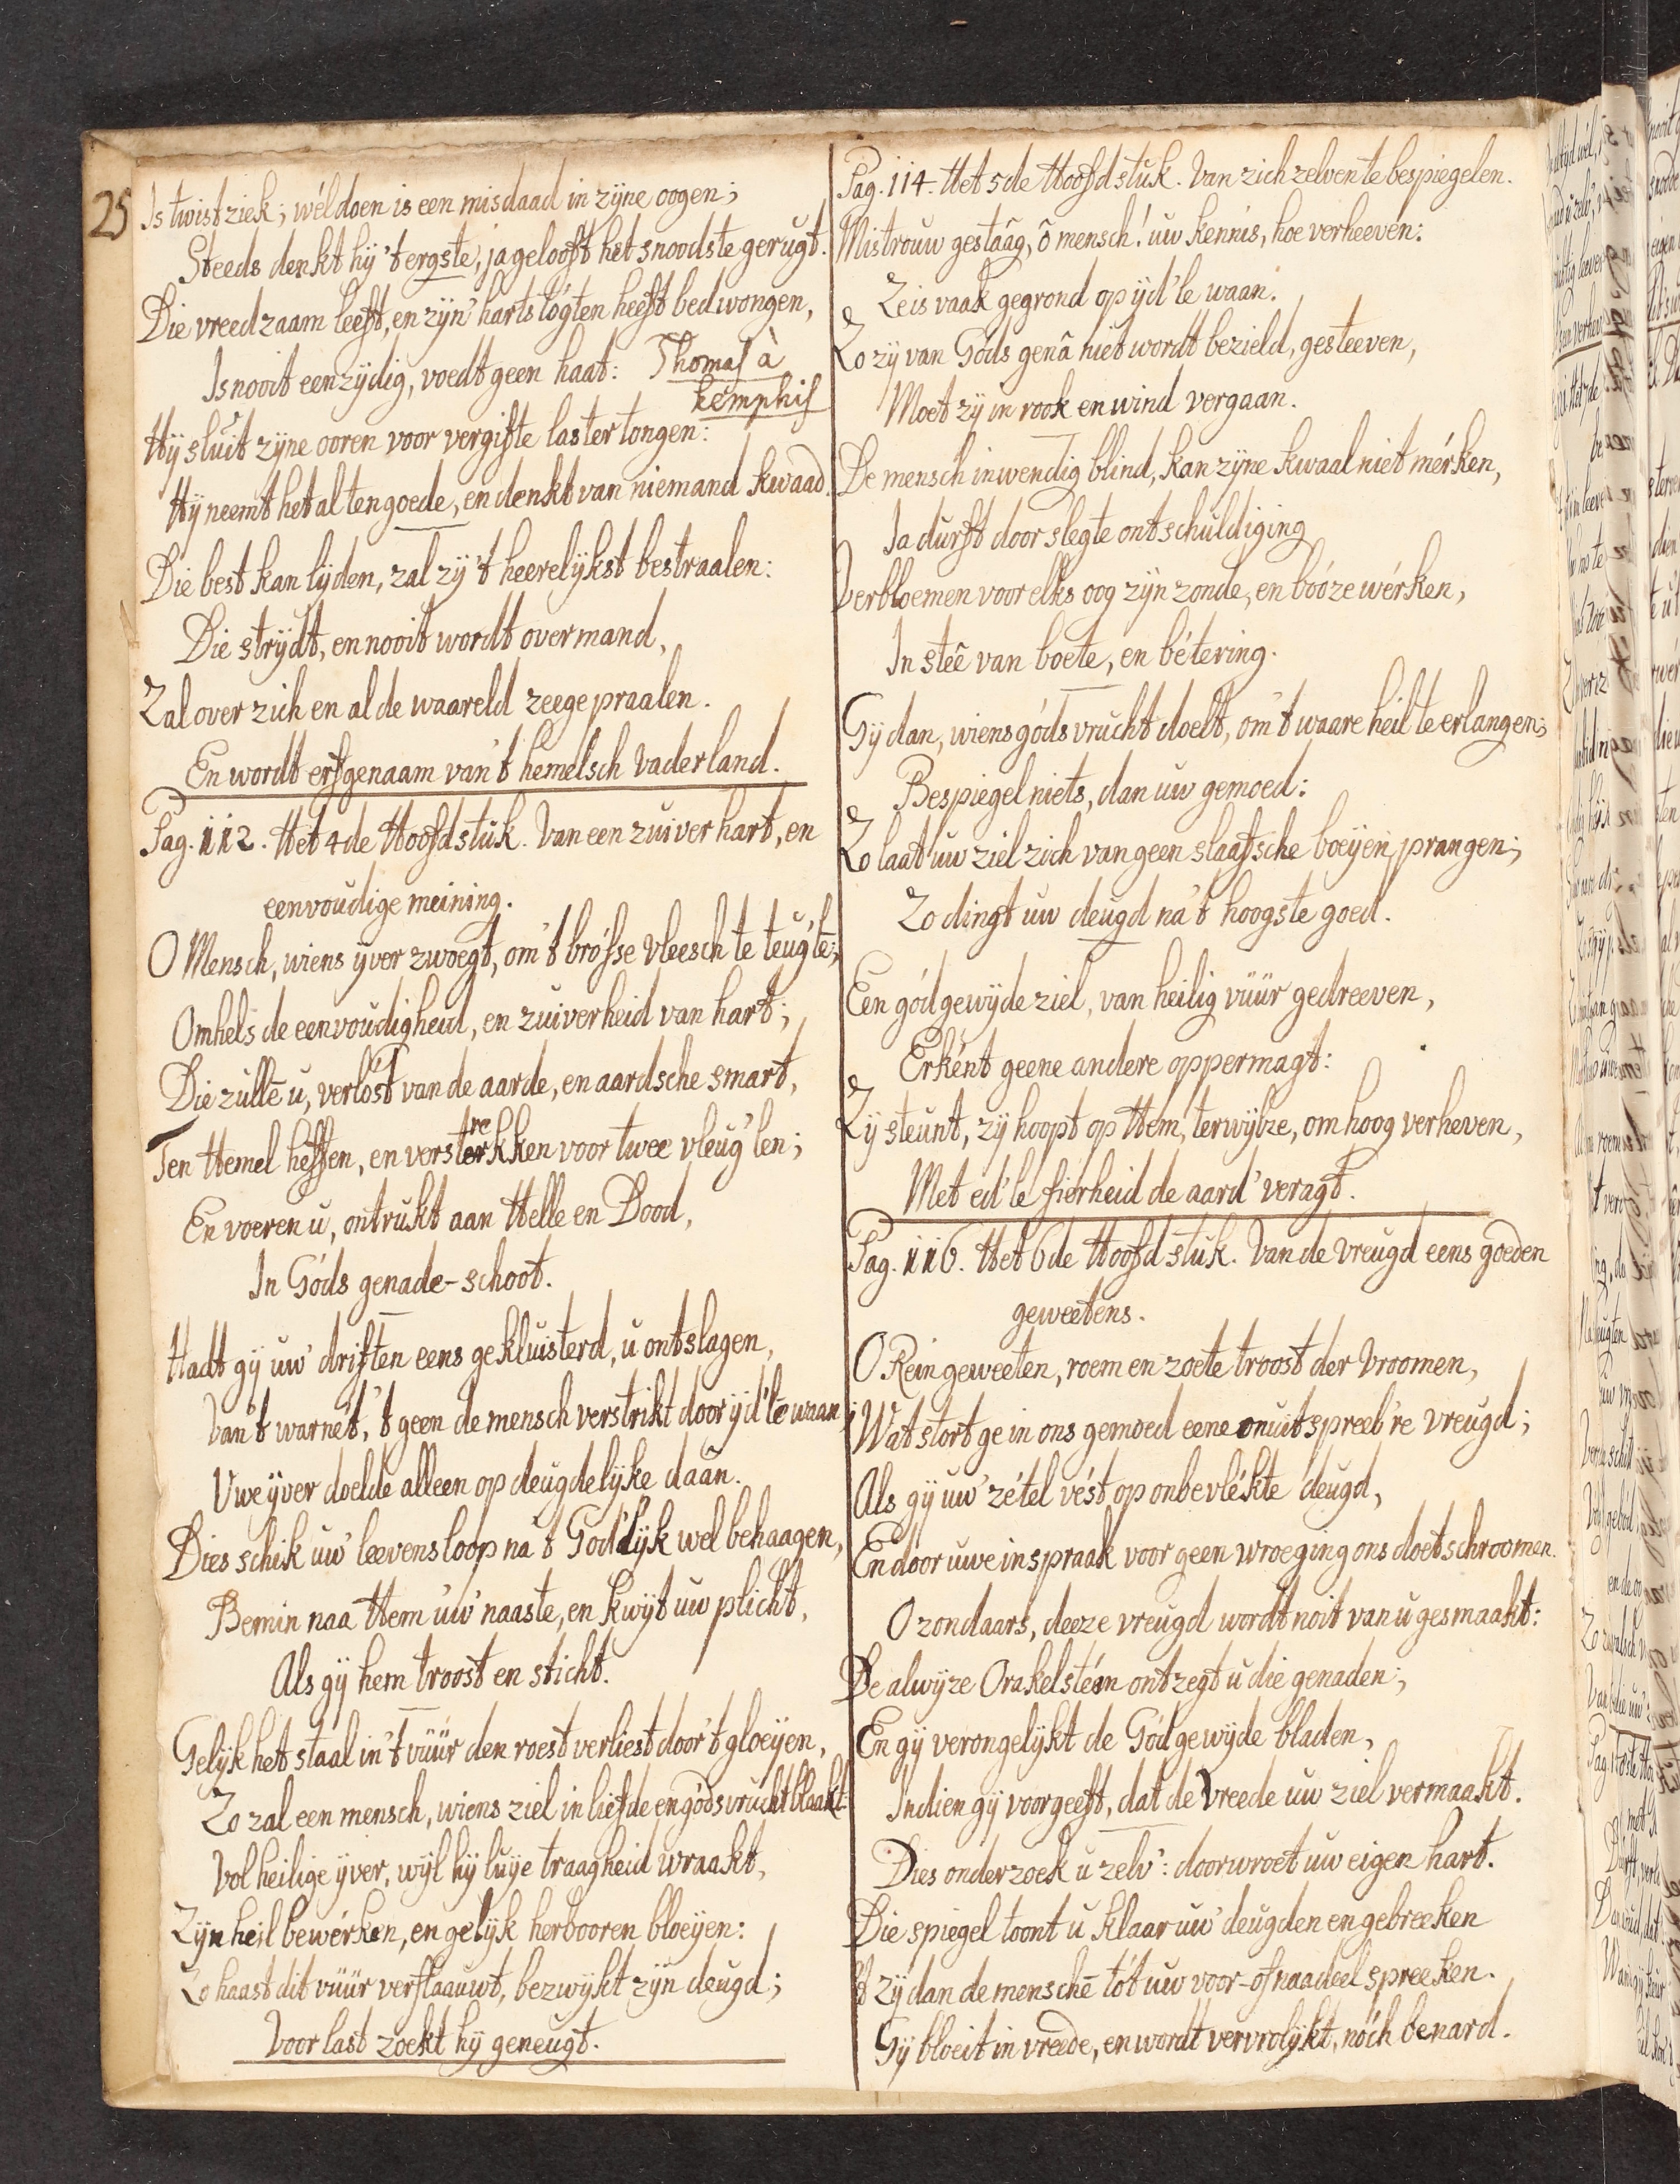 25
Is twistziek; wél doen is een misdaad in zÿne oogen;
Steeds denkt hÿ 't ergste, ja gelooft het snoodste gerugt.
Die vreedzaam leeft, en zÿn' hartstógten heeft bedwongen,
Is nooit eenzÿdig, voedt geen haat: Thomas à
kemphis
Hÿ sluit zÿne ooren voor vergifte lastertongen:
Hÿ neemt het al ten goede, en denkt van niemand kwaad.
Die best kan lÿden, zal zÿ 't heerelÿkst bestraalen:
Die strÿdt, en nooit wordt overmand,
Zal over zich en al de waareld zeegepraalen.
En wordt erfgenaam van 't hemelsch Vaderland.
Pag. 112. Het 4de Hoofdstuk. Van een zuiver hart, en
eenvoudige meining.
O Mensch, wiens ÿver zwoegt, om 't brósse vleesch te teug'lē;
Omhels de eenvoudigheid, en zuiverheid van hart;
Die zullē u, verlóst van de aarde, en aardsche smart,
Ten Hemel heffen, en versterkken voor twee vleug'len;
re
En voeren u, ontrukt aan Helle en Dood,
In Góds genade-schoot.
Hadt gÿ uw' driften eens gekluisterd, u ontslagen,
Van 't warnet, 't geen de mensch verstrikt door ÿd'lē waan;
Uwe ÿver doelde alleen op deugdelÿke daân.
Dies schik uw' leevensloop na 't God'lÿk welbehaagen,
Bemin naa Hem uw' naaste, en kwÿt uw plicht,
Als gÿ hem troost en sticht.
Gelÿk het staal in 't vüür den roest verliest door 't gloeÿen,
Zo zal een mensch, wiens ziel in liefde en gódsvrucht blaakt:
Vol heilige ÿver, wÿl hÿ luÿe traagheid wraakt,
Zÿn heil bewérken, en gelÿk herbooren bloeÿen:
Zo haast dit vüür verflaauwt, bezwÿkt zÿn deugd;
Voor last zoekt hÿ geneugt.
Pag. 114. Het 5de Hoofdstuk. Van zich zelven te bespiegelen.
Mistrouw gestaâg, ô mensch! uw kennis, hoe verheeven:
Ze is vaak gegrond op ÿd'le waan.
Zo zÿ van Góds genâ niet wordt bezield, gesteeven,
Moet zÿ in rook en wind vergaan.
De mensch inwendig blind, kan zÿne kwaal niet mérken,
Ja durft door slegte ontschuldiging
Verbloemen voor elks oog zÿn zonde, en bóóze wérken,
In steê van boete, en bétering.
Gÿ dan, wiens gódsvrucht doelt, om 't waare heil te erlangen;
Bespiegel niets, dan uw gemoed:
Zo laat uw ziel zich van geen slaafsche boeÿen prangen;
Zo dingt uw deugd na 't hoogste goed.
Een gódgewÿde ziel, van heilig vüür gedreeven,
Erként geene andere oppermagt:
Zÿ steunt, zÿ hoopt op Hem, terwÿl ze, om hoog verheven,
Met ed'le fierheid de aard' veragt.
Pag. 116. Het 6de Hoofdstuk. Van de Vreugd eens goeden
geweetens.
O Rein geweeten, roem en zoete troost der Vroomen,
Wat stort ge in ons gemoed eene onuitspreeb're vreugd;
Als gÿ uw' zétel vést op onbevlékte deugd,
En door uwe inspraak voor geen wroeging ons doet schroomen.
O zondaars, deeze vreugd wordt noit van u gesmaakt:
De alwÿze Orakelstém ontzegt u die genaden;
En gÿ verongelÿkt de Gódgewÿde bladen,
Indien gÿ voorgeeft, dat de Vreede uw ziel vermaakt.
Dies onderzoek u zelv': doorwroet uw eigen hart.
Die spiegel toont u klaar uw' deugden en gebreeken
't zÿ dan de menschē tót uw voor-of naadeel spreeken.
Gÿ bloeit in vreede, en wordt vervrolÿkt, nóch benard.